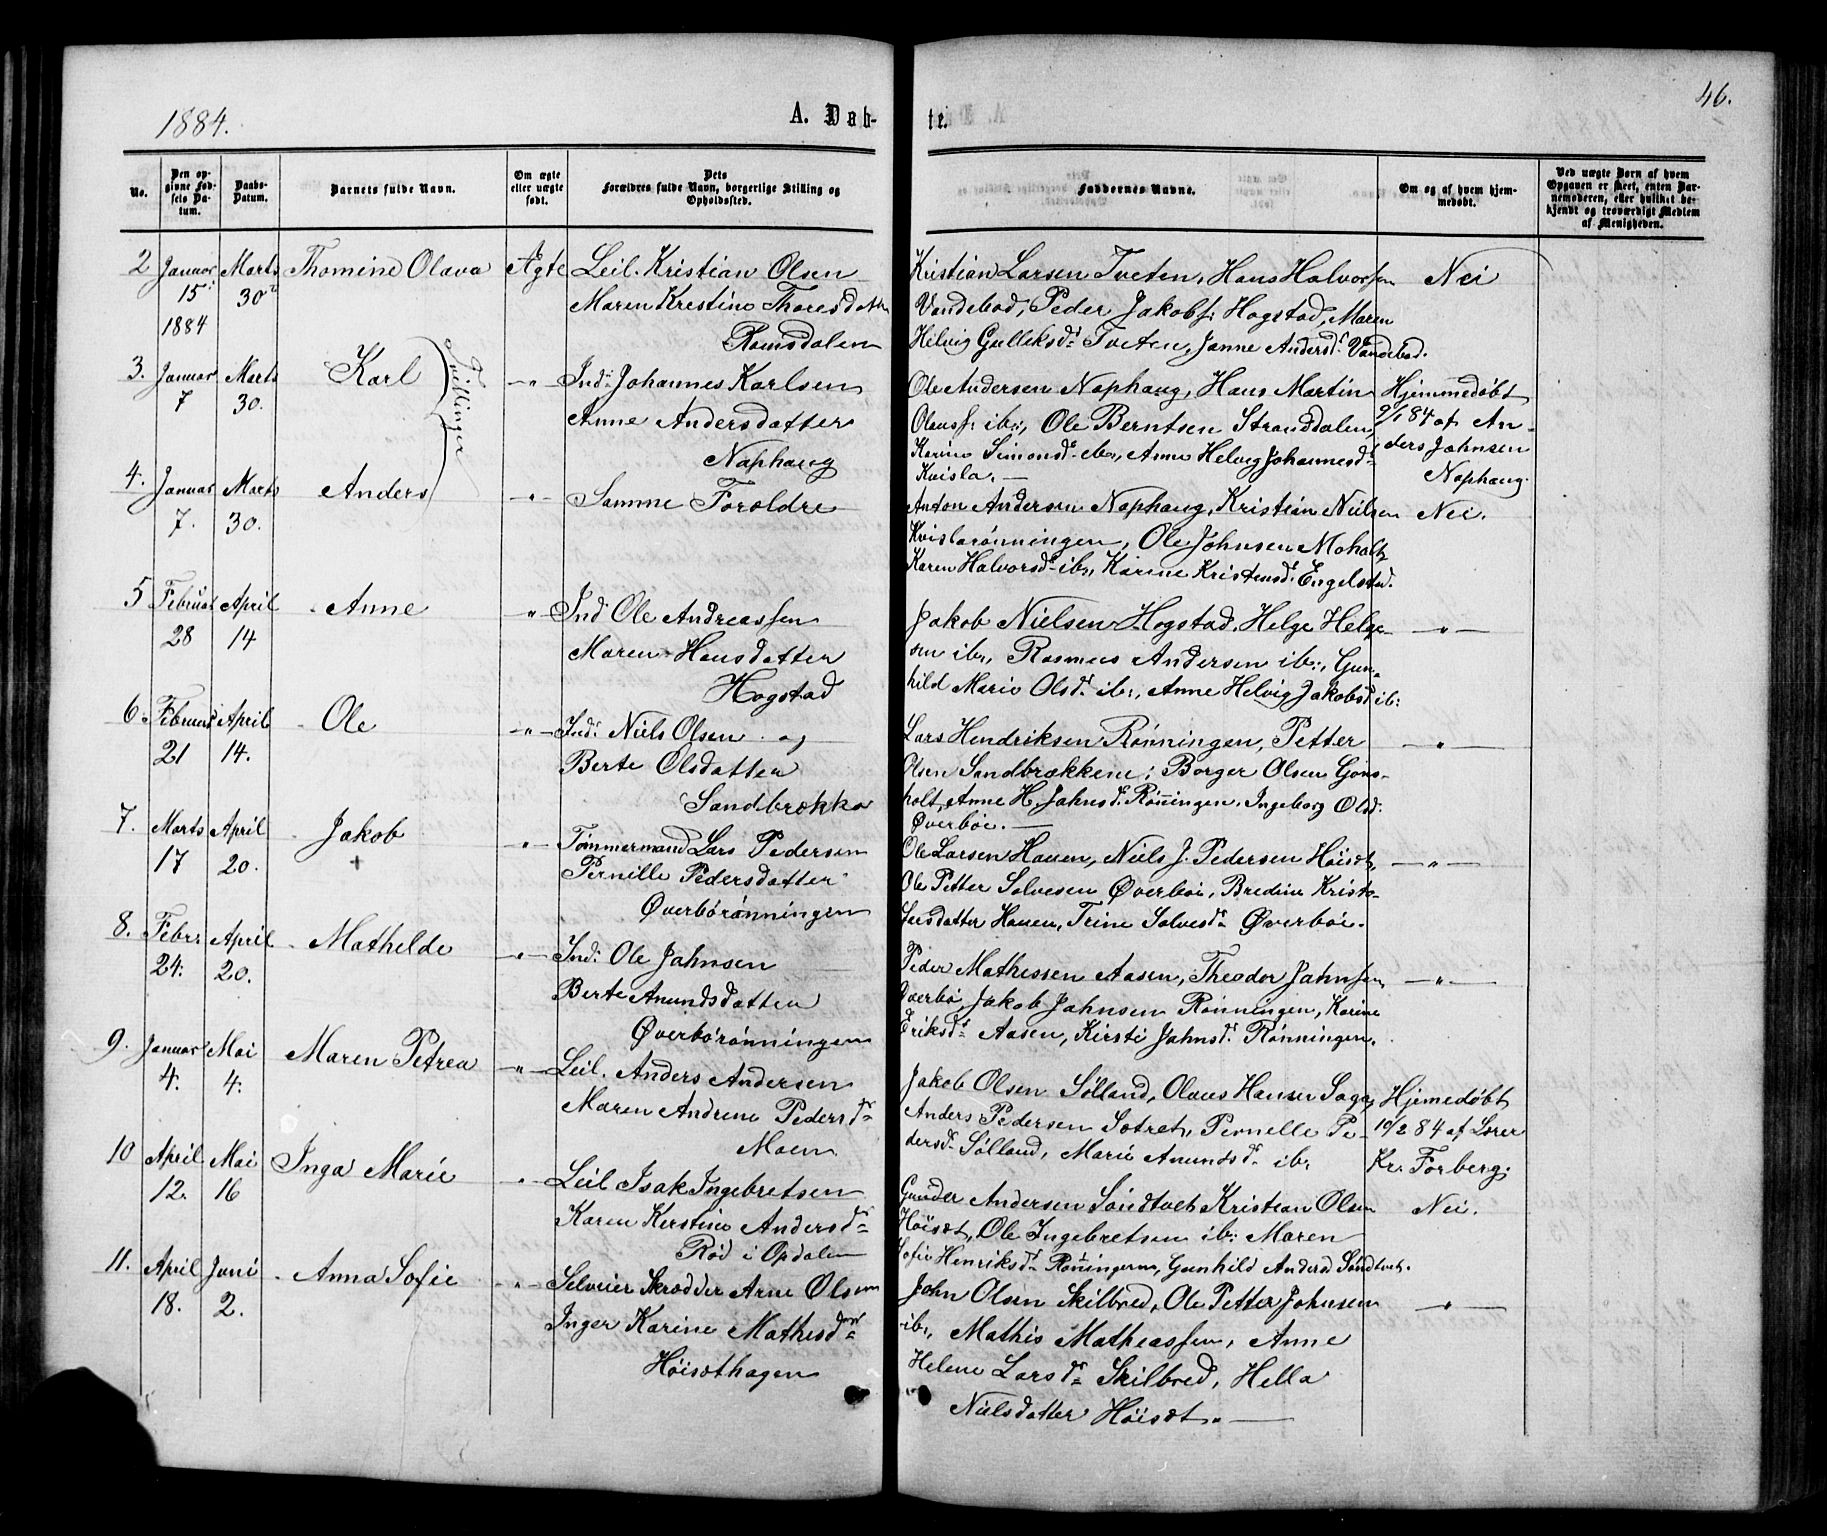 1884.
A. Døb-
te.
46.
No.
Den op-
givne Fød-
sels Da-
tum.
Daabs-
Datum.
Barnets fulde Navn.
Om ægte
eller uægte
født.
Dets
Forældres fulde Navn, borgerlige Stilling og
Opholdssted.
Faddernes Navne.
Om og af hvem hjem-
medøbt.
Ved uægte Børn af hvem
Opgaven er skeet, enten Bar-
nemoderen, eller hvilket be-
kjendt og troværdigt Medlem
af Menigheden.
2 Januar 15 1884 Marts 30 Thomine Olava Ægte Leil. Kristian Olsen
Maren Krestine Thoresdatter
Ramsdalen
Kristian Larsen Tveten, Hans Halvorsen
Vandebad, Peder Jakobs: Hogstad, Maren
Helvig Gulleksd: Tveten, Janne Andersd: Vandebad.
Nei
3. Januar 7 Marts 30. Karl Tvillinger -"- Ind: Johannes Karlsen
Anne Andersdatter
Naphaug
Ole Andersen Naphaug, Hans Martin
Olauss: ib:, Ole Berntsen Stranddalen,
Karine Simonsd: ib:, Anne Helvig Johannesd:
Kvisla. —
Hjemmedøbt
9/1 84 af An-
ders Johnsen
Naphaug.
4. Januar 7. Marts 30. Anders -"- Samme Foroldre
Anton Andersen Naphaug, Kristian Nielsen
Kvislarønningen, Ole Johnsen Moholt,
Karen Halvorsd: ib:, Karine Kristensd: Engelstad.
Nei.
5 Februar 28 April 14 Anne -"- Ind: Ole Andreassen
Maren Hansdatter
Hogstad
Jakob Nielsen Hogstad, Helge Helge-
sen ib:, Rasmus Andersen ib:, Gun-
hild Marie Olsd: ib:, Anne Helvig Jakobsd ib:
-"-
6. Februar 21 April 14. Ole -"- Ind: Niels Olsen og
Berte Olsdatter
Sandbrækka
Lars Hendriksen Rønningen, Petter
Olsen Sandbrækkene, Borger Olsen Gons-
holt, Anne H. Jahnsd: Rønningen, Ingeborg Olsd:
Øverbøe. —
-"-
7. Marts 17 April 20. Jakob + -"- Tømmermand Lars Pedersen
Pernille Pedersdatter
Øverbørønningen
Ole Larsen Hauen, Niels J. Pedersen Høisæt,
Ole Petter Solvesen Øverbøe, Bredine Kristo-
fersdatter Hauen, Trine Solvesd: Øverbøe.
-"-
8. Febr: 24. April 20. Mathilde -"- Ind: Ole Jahnsen
Berte Anundsdatter
Øverbørønningen
Peder Mathissen Aasen, Theodor Jahnsen
Øverbø, Jakob Jahnsen Rønningen, Karine
Eriksd: Aasen, Kirsti Jahnsd: Rønningen.
-"-
9. Januar 4. Mai 4. Maren Petrea -"- Leil. Anders Andersen
Maren Andrine Pedersd:
Moen
Jakob Olsen Sølland, Olaus Hansen Saga,
Anders Pedersen Sætret, Pernelle Pe-
dersd: Sølland, Marie Anundsd: ib:
Hjemedøbt
10/2 84 af Lærer
Kr. Forberg.
10 April 12. Mai 16 Inga Marie -"- Leil Isak Ingebretsen
Karen Kerstine Andersd:
Rød i Opdalen
Gunder Andersen Søndtveit, Kristian Olsen
Høisæt, Ole Ingebretsen ib: Maren
Sofie Henriksd: Rønningene, Gunhild Andersd Søndtvet.
Nei.
11. April 18. Juni 2. Anna Sofie -"- Selveier Skrædder Arne Olsen
Inger Karine Mathisd:
Høisæthagen
John Olsen Skilbred, Ole Petter Johnsen
ib:, Mathis Mathiassen, Anne
Helene Larsd: Skilbred, Hella
Nielsdatter Høisæt. —
-"-